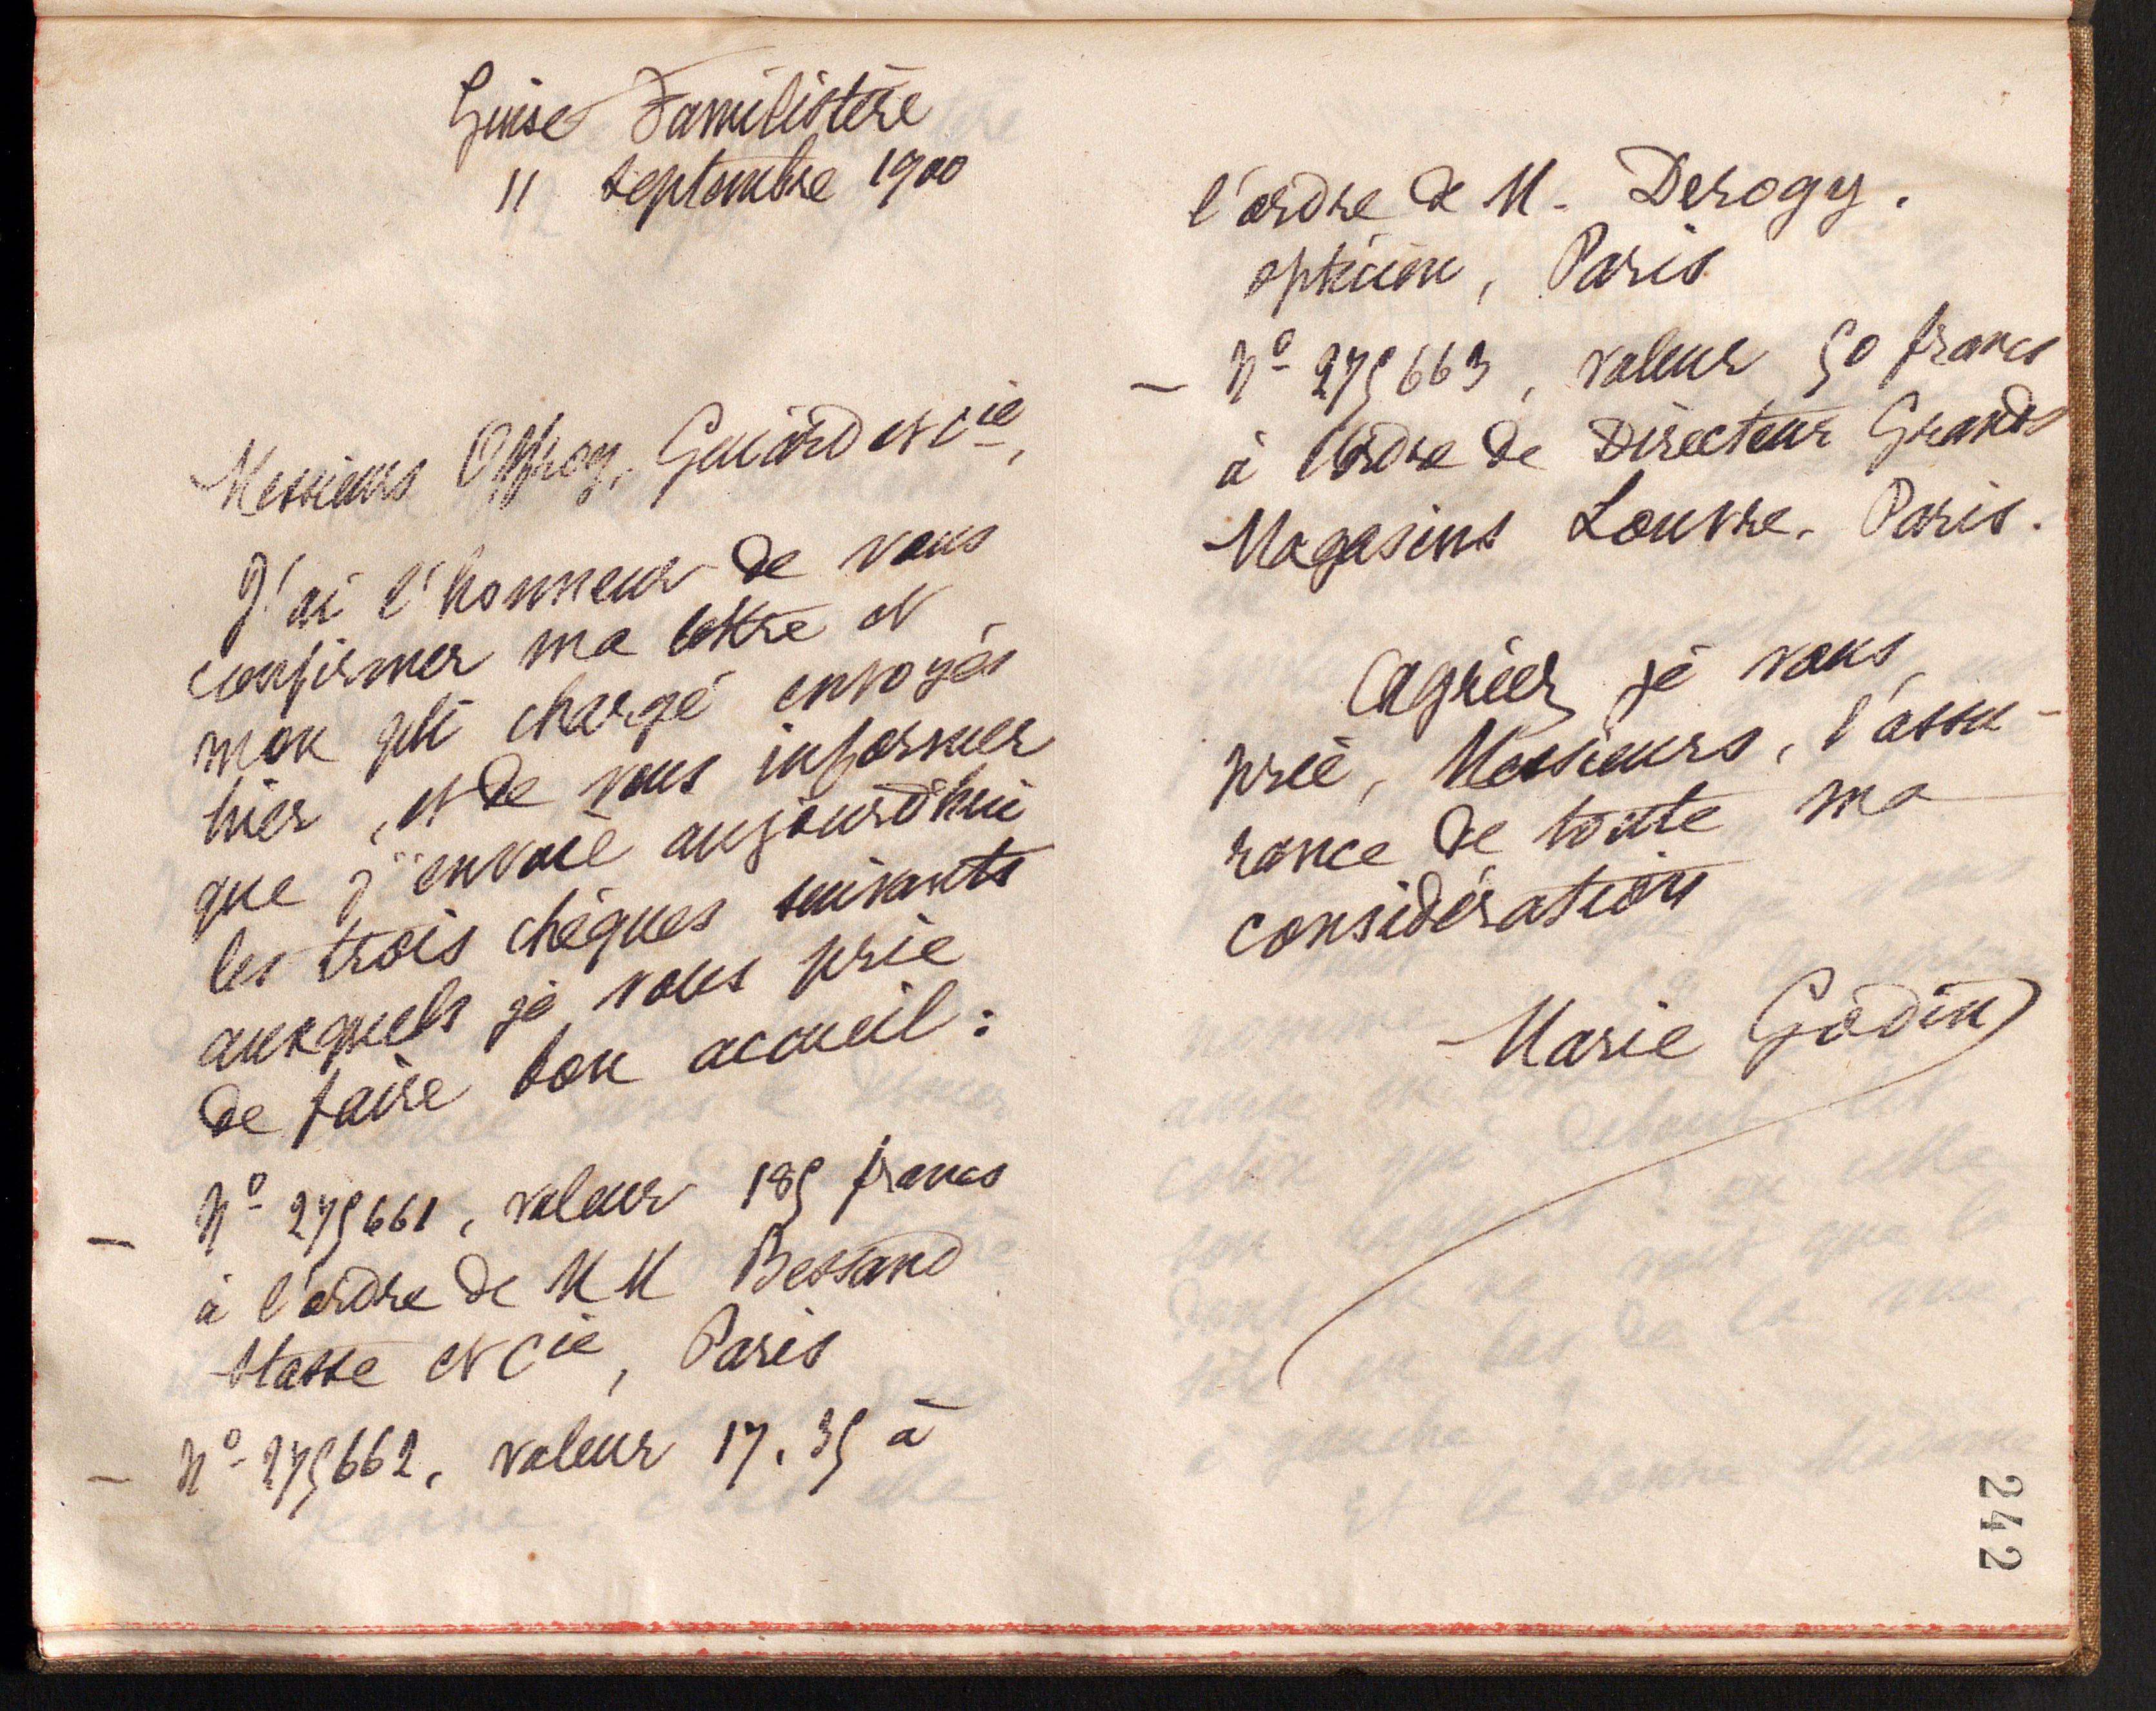 Guise Familistère
11 septembre 1900
Messieurs Offroy, Guiard et Cie,
J'ai l'honneur de vous
confirmer ma lettre et
mon pli chargé envoyés
hier, et de vous informer
que j'envoie aujourd'hui
les trois chèques suivants
auxquels je vous prie
de faire bon accueil :
— No 275661, valeur 185 francs
à l'ordre de MM Bessand
Stasse et Cie, Paris
— No 275662, valeur 17.35 à
l'ordre de M. Derogy.
opticien, Paris
— No 275663, valeur 50 francs
à l'ordre de Directeur Grands
Magasins Louvre. Paris.
Agréez je vous
prie, Messieurs, l'assu-
rance de toute ma
considération
Marie Godin
242